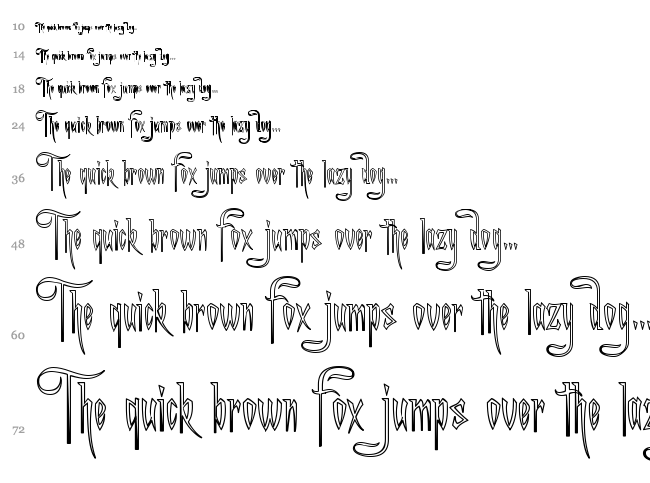 10 The quick brown fox jumps over the lazy dog...
14 The quick brown fox jumps over the lazy dog...
18 The quick brown fox jumps over the lazy dog...
24 The quick brown fox jumps over the lazy dog...
36 The quick brown fox jumps over the lazy dog...
48 The quick brown fox jumps over the lazy dog...
60 The quick brown fox jumps over the lazy dog...
72 The quick brown fox jumps over the laz